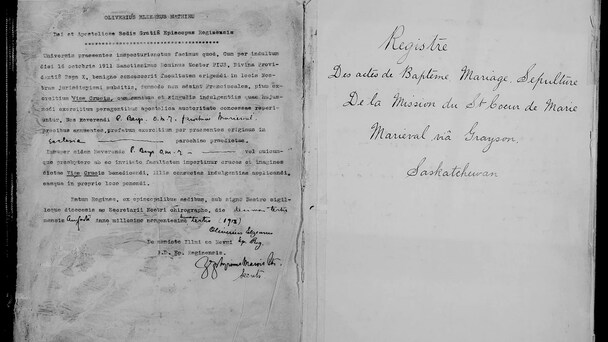 OLIVERIUS ELZEARUS MATHIEU
Dei et Apostolicae Sedis Gratiâ Episcopus Reginensis
Universis praesentes inspecturis notum facimus quod, Cum per indultum
diei 16 octobris 1911 Sanctissimus Dominus Noster PIUS, Divinâ Provi-
dentiâ Papa X, benigne concesserit facultatem erigendi in locis Nos-
trae jurisdictioni subditis,
Viae Crucis, cum omnibus et singulis indulgentiis quae hujus-
modi exercitium peragentibus apostolica auctoritate concessae reperi-
untur, Nos Reverendi P. Beys, O.M.I.
precibus annuentes, praefatum exercitium per praesentes erigimus in
ecclesia parochiae praedictae.
Insuper eidem Reverendo P. Beys O.M.I. vel cuicum-
que presbytero ab eo invitato facultatem impertimur cruces et imagines
dictae Viae Crucis benedicendi, illis consuetas indulgentias applicandi,
easque in proprio loco ponendi.
Datum Reginae, ex episcopalibus aedibus, sub signo Nostro sigillo-
que dioecesis ac Secretarii Nostri chirographo, die
mensis Augusti anno millesimo nongentesimo (1913)
De mandato Illmi ac Revmi
D.D. Ep. Reginensis.
Registre
Des actes de Baptème Mariage, Sepulture
De la Mission du St Coeur de Marie
Marieval viâ Grayson,
Saskatchewan